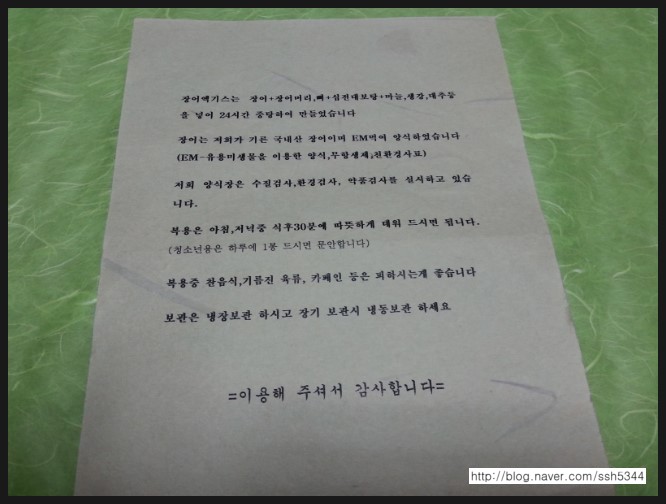 장어엑기스는 장어+장어머리,뼈+십전대보탕+마늘,생강,대추등
을 넣어 24시간 중탕하여 만들었습니다
장어는 저희가 기른 국내산 장어이며 EM먹여 양식하였습니다
(EM-유용미생물을 이용한 양식,무항생제,친환경사료)
저희 양식장은 수질검사,환경검사, 약품검사를 실시하고 있습
니다.
복용은 아침,저녁중 식후30분에 따뜻하게 데워 드시면 됩니다.
(청소년용은 하루에 1봉 드시면 문안합니다)
복용중 찬음식,기름진 육류, 카페인 등은 피하시는게 좋습니다
보관은 냉장보관 하시고 장기 보관시 냉동보관 하세요
=이용해 주셔서 감사합니다=
http://blog.naver.com/ssh5344